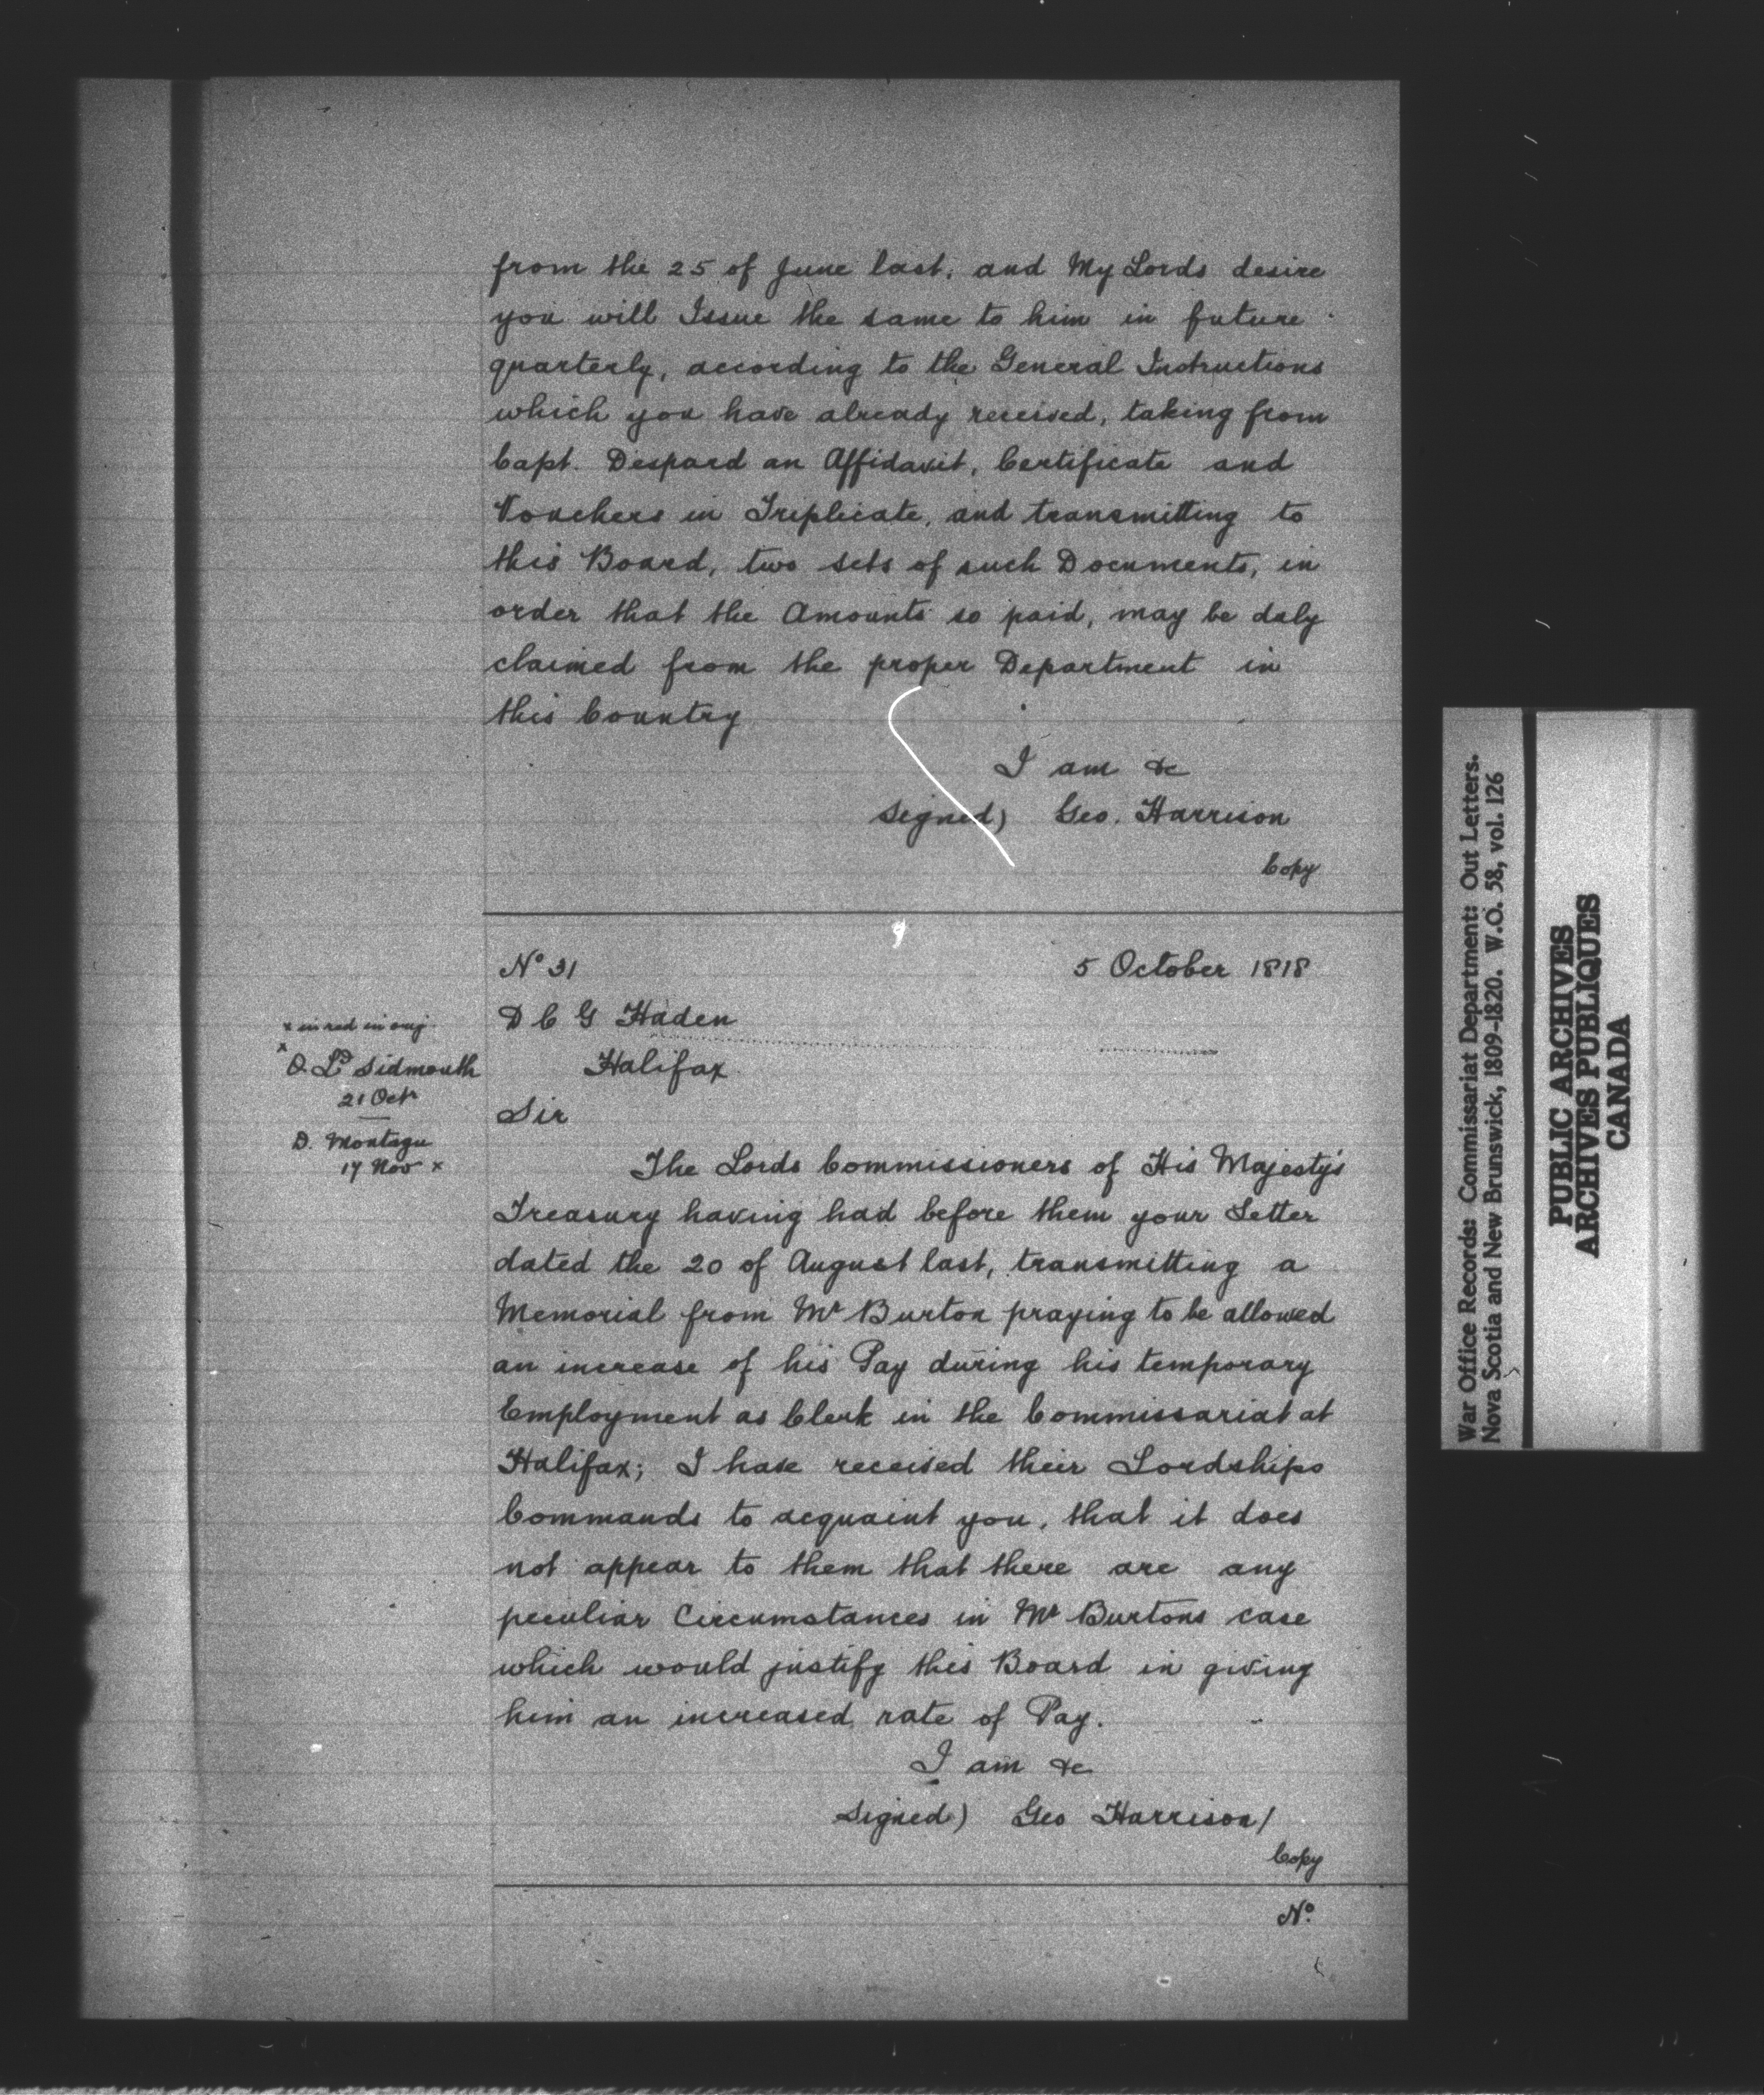 from the 25 of June last, and My Lords desire
you will Issue the same to him in future
quarterly, according to the General Instructions
which you have already received, taking from
Capt. Despard an Affidavit, Certificate and
Vouchers in Triplicate, and transmitting to
this Board, two sets of such Documents, in
order that the Amounts so paid, may be duly
claimed from the proper Department in
this Country
I am &c
Signed) Geo. Harrison
Copy
No 31 5 October 1818
D C G Haden
Halifax
Sir
x in red in orig
x
O. Ld Sidmouth
21 Octr
D. Montagu
17 Nov x
The Lords Commissioners of His Majesty's
Treasury having had before them your Letter
dated the 20 of August last, transmitting a
Memorial from Mr Burton praying to be allowed
an increase of his Pay during his temporary
Employment as Clerk in the Commissariat at
Halifax; I have received their Lordships
Commands to acquaint you, that it does
not appear to them that there are any
peculiar Circumstances in Mr Burtons case
which would justify this Board in giving
him an increased rate of Pay.
I am &c
Signed) Geo Harrison/
Copy
No.
War Office Records: Commissariat Department: Out Letters.
Nova Scotia and New Brunswick, 1809-1820. W.O. 58, vol. 126
PUBLIC ARCHIVES
ARCHIVES PUBLIQUES
CANADA